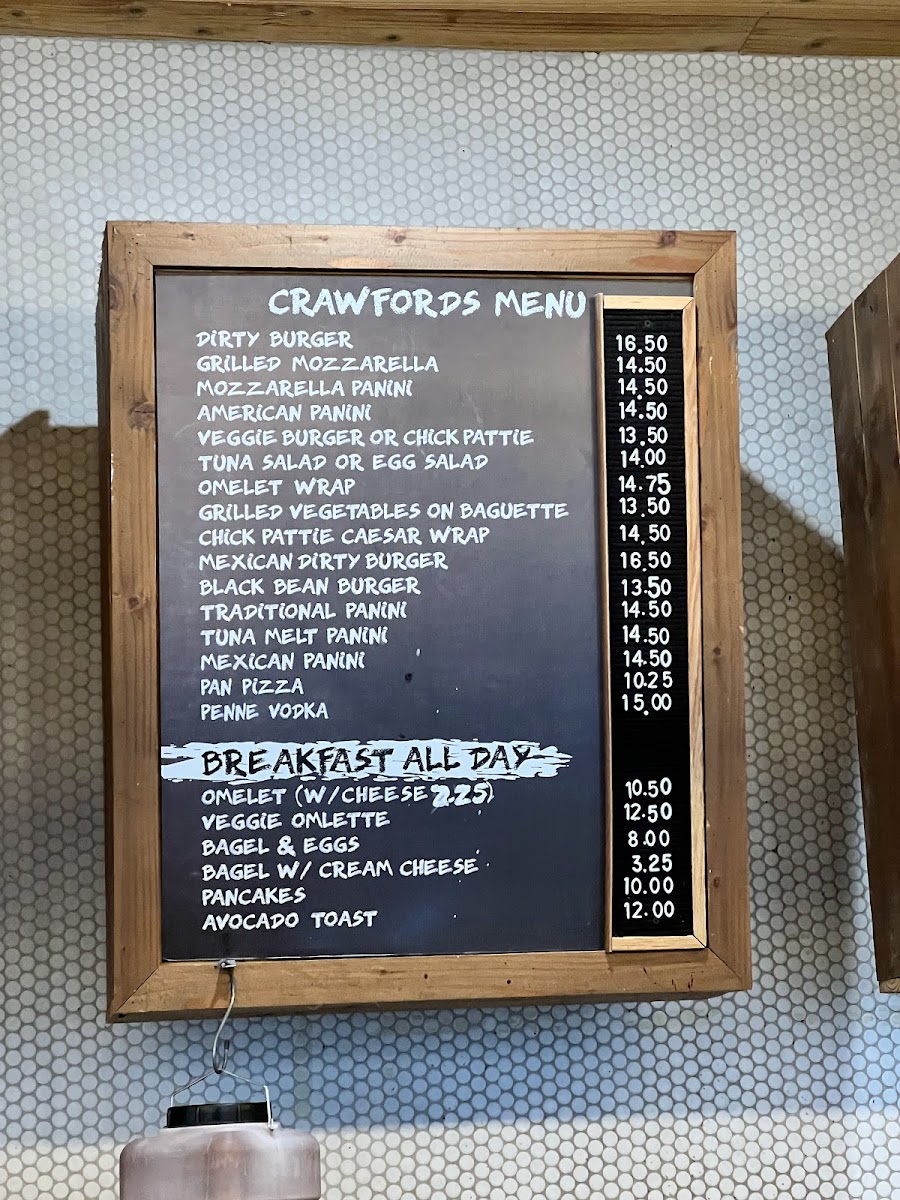 CRAWFORDS MENU
DIRTY BURGER 16.50
GRILLED MOZZARELLA 14.50
MOZZARELLA PANINI 14.50
AMERICAN PANINI 14.50
VEGGIE BURGER OR CHICK PATTIE 13.50
TUNA SALAD OR EGG SALAD 14.00
OMELET WRAP 14.75
GRILLED VEGETABLES ON BAGUETTE 13.50
CHICK PATTIE CAESAR WRAP 14.50
MEXICAN DIRTY BURGER 16.50
BLACK BEAN BURGER 13.50
TRADITIONAL PANINI 14.50
TUNA MELT PANINI 14.50
MEXICAN PANINI 14.50
PAN PIZZA 10.25
PENNE VODKA 15.00
BREAKFAST ALL DAY
OMELET (W/CHEESE 2.25) 10.50
VEGGIE OMLETTE 12.50
BAGEL & EGGS 8.00
BAGEL W/ CREAM CHEESE 3.25
PANCAKES 10.00
AVOCADO TOAST 12.00